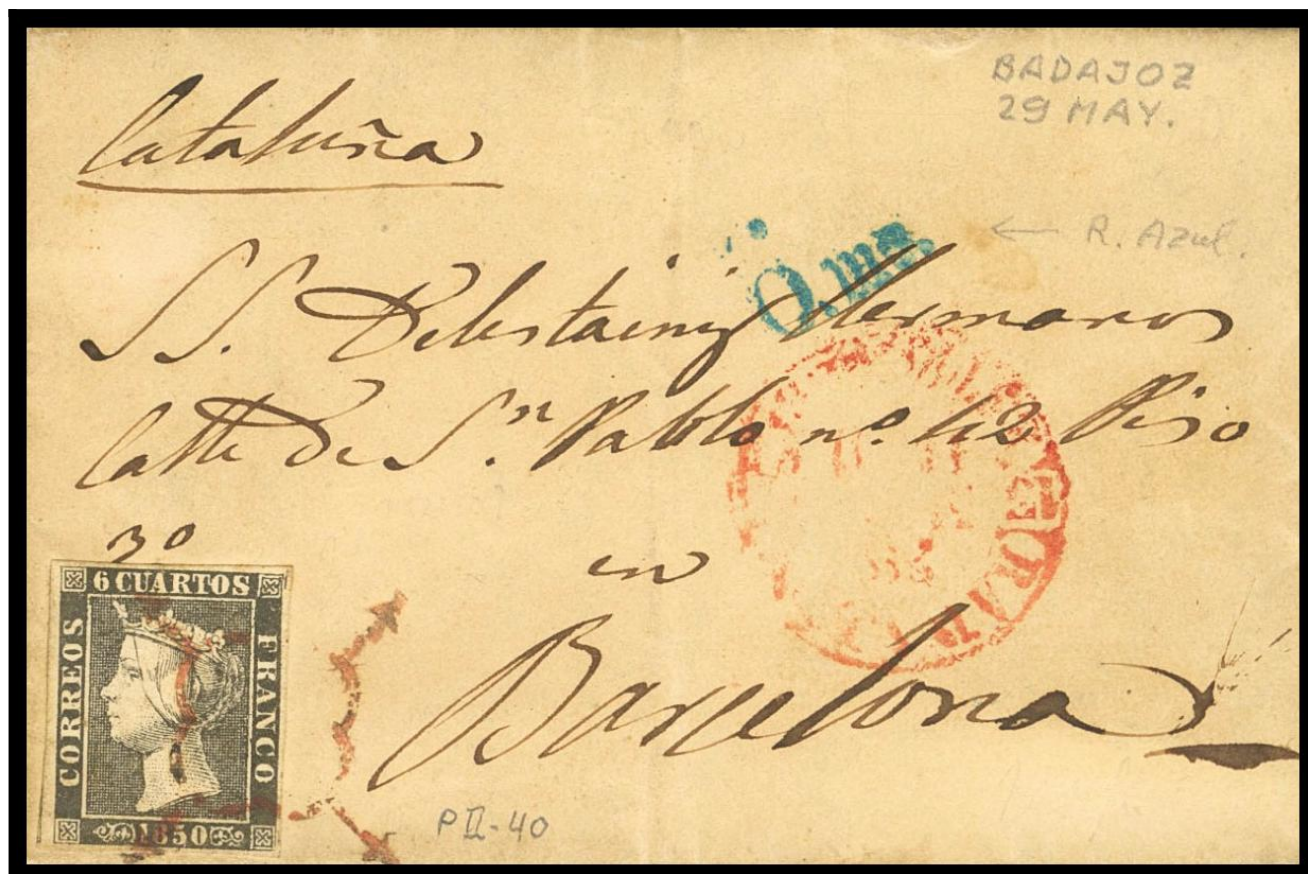 BADAJOZ
29 MAY.
Cataluña
← R. Azul.
O.ms.
SS. Hermanos
Calle de Sn. Pablo nº 42 Piso
3º
en
Barcelona
6 CUARTOS
CORREOS
FRANCO
1850
P II-40